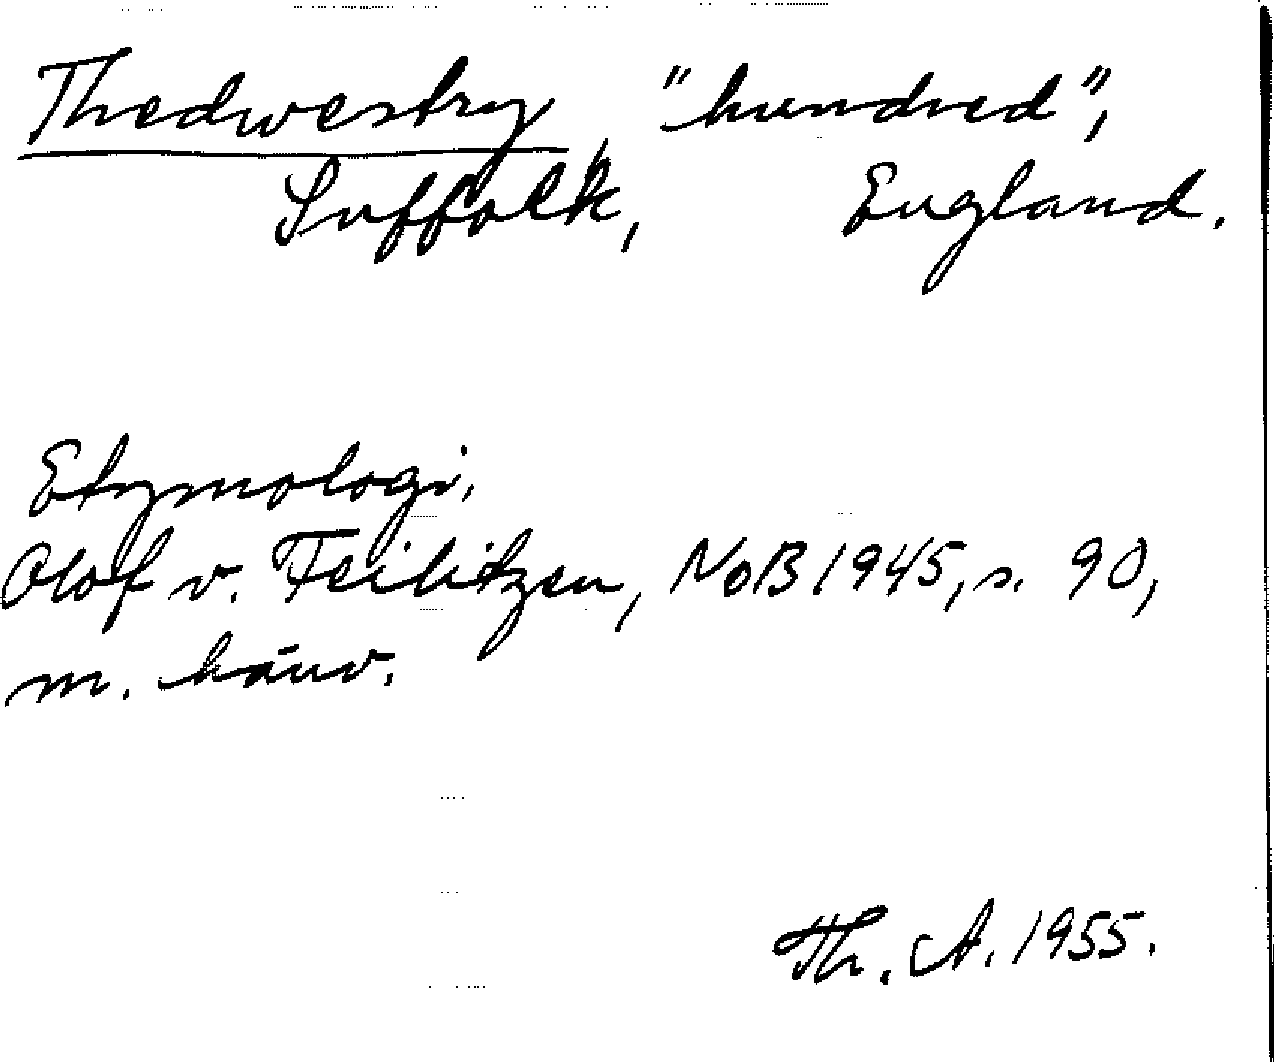 Thedwestry, "hundred",
Suffolk, England.
Etymologi.
Olof v. Feilitzen, NoB 1945, s. 90,
m. hänv.
Th. A. 1955.